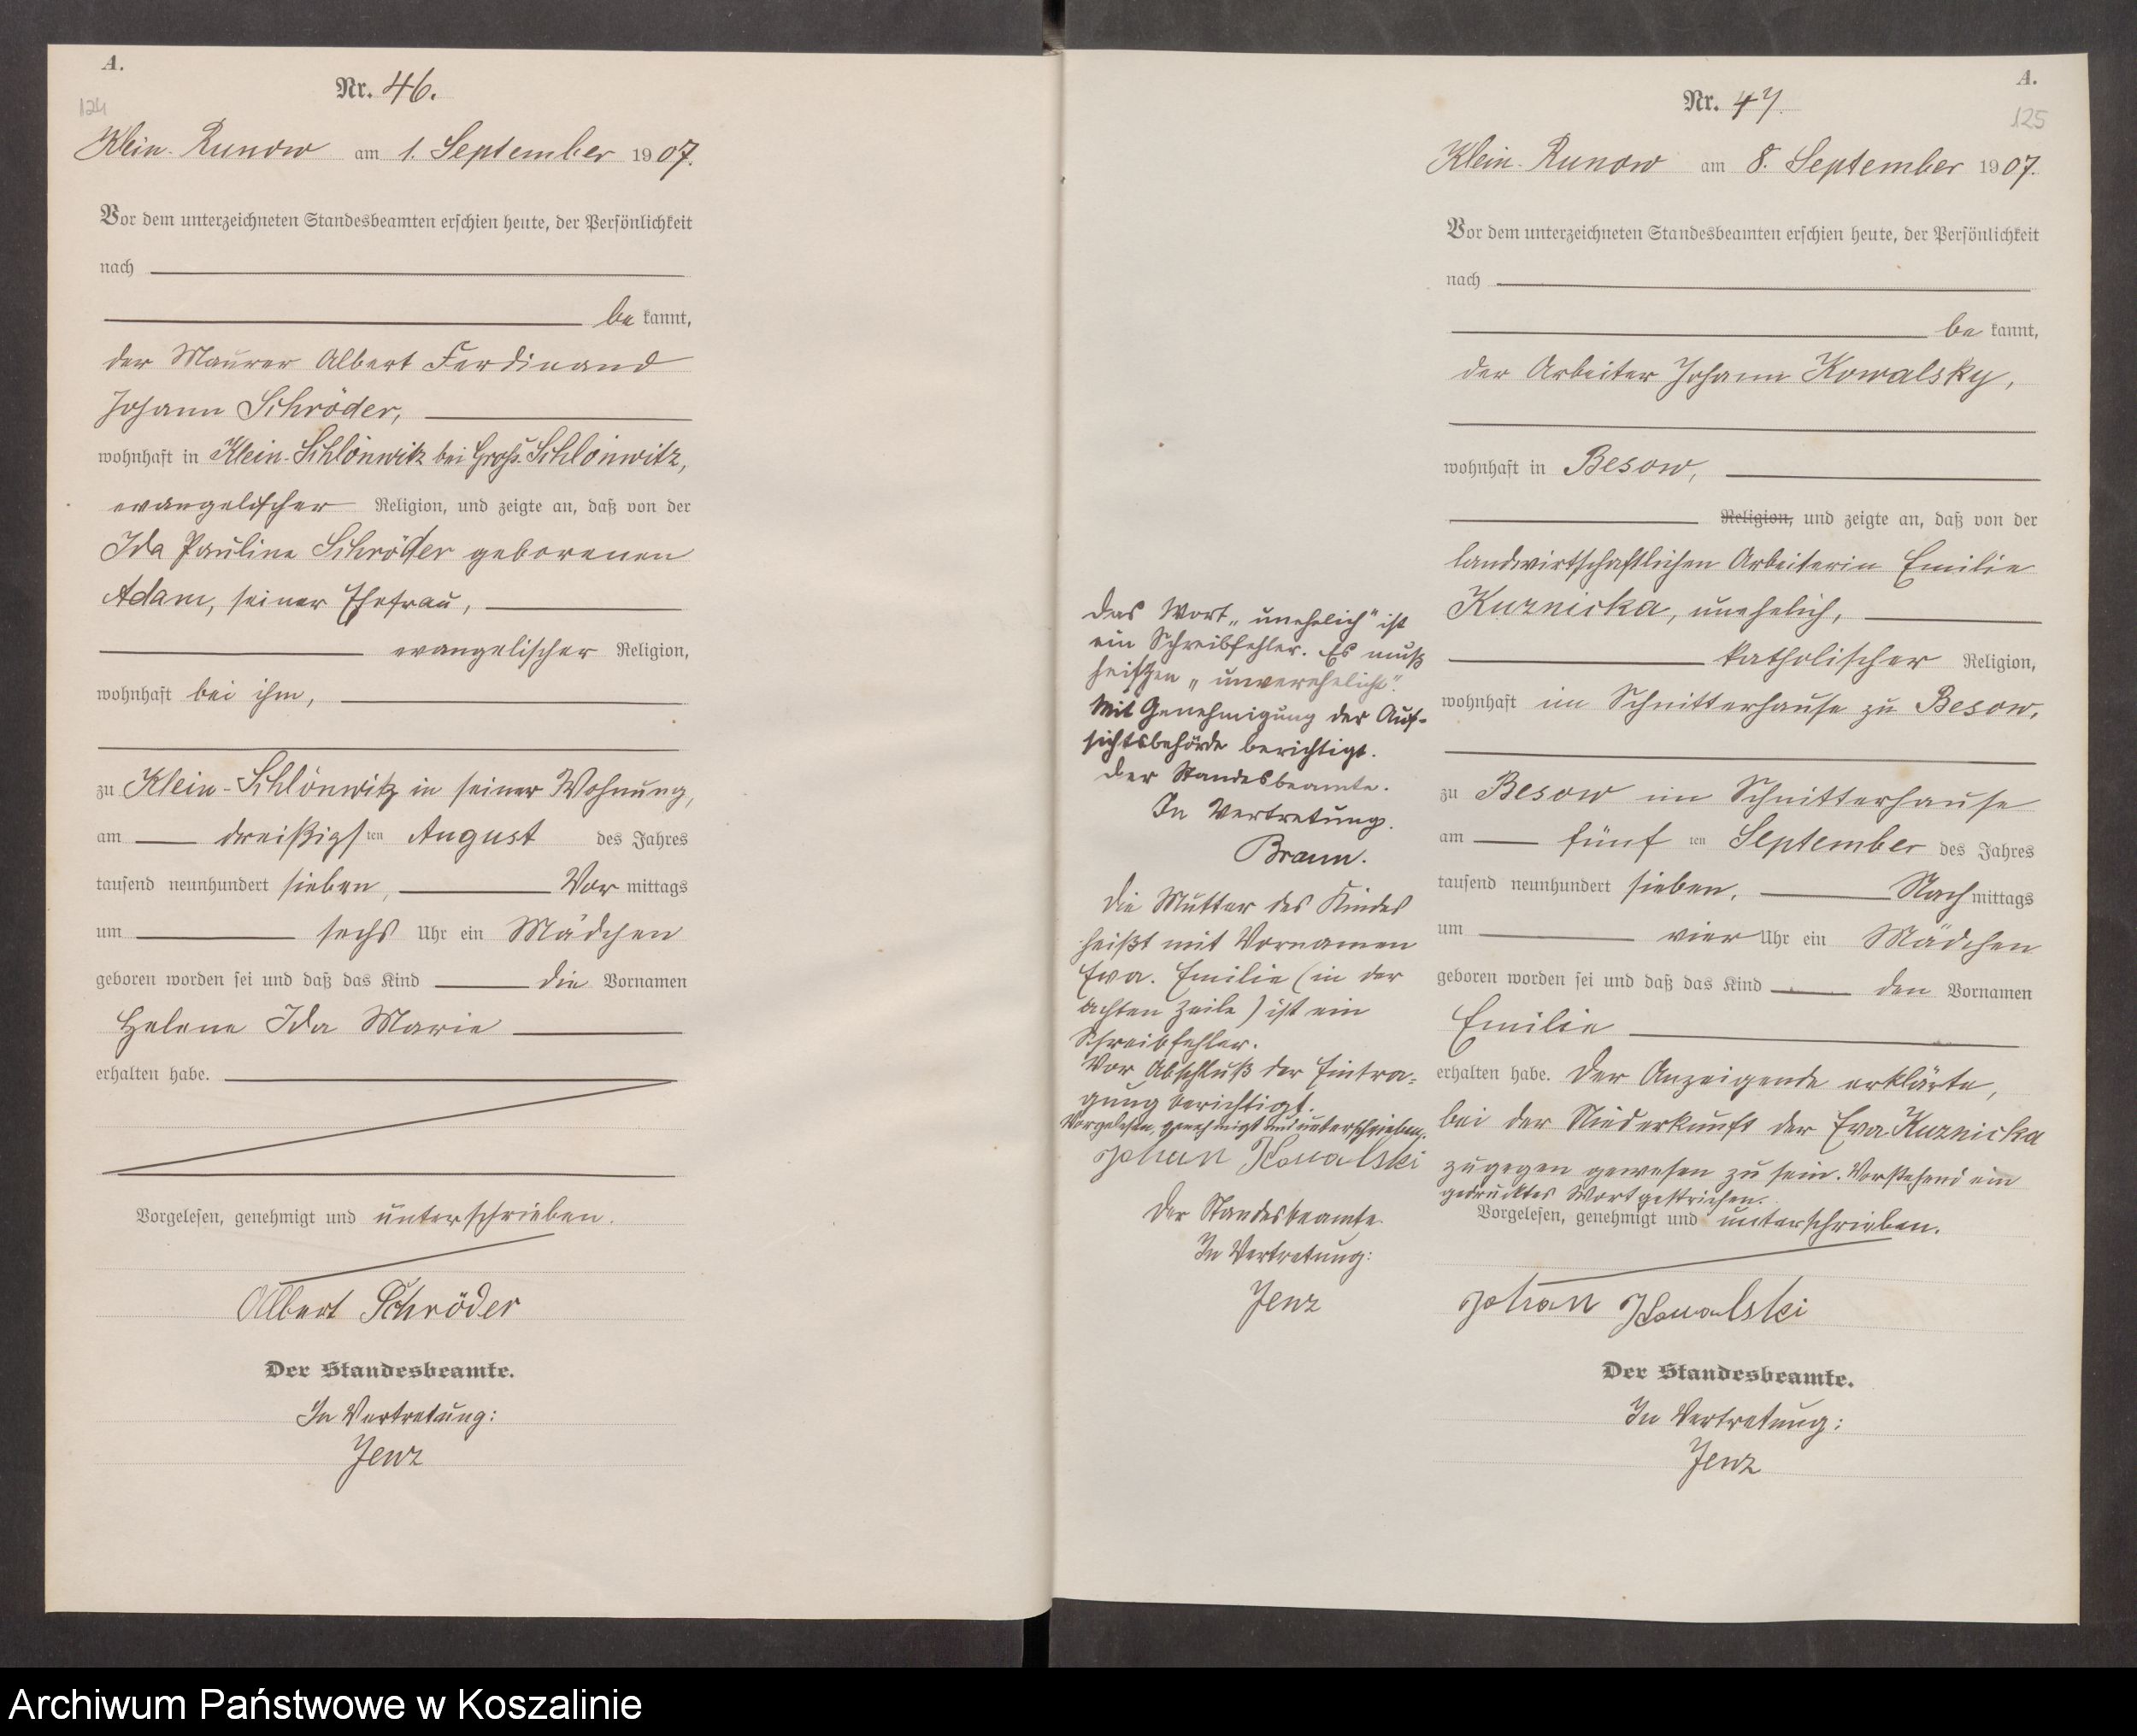 A.
124
Nr. 46.
Klein-Runow am 1. September 1907.
Vor dem unterzeichneten Standesbeamten erschien heute, der Persönlichkeit
nach
be kannt,
der Maurer Albert Ferdinand
Johann Schröder,
wohnhaft in Klein-Schlönwitz bei Groß-Schlönwitz,
evangelischer Religion, und zeigte an, daß von der
Ida Pauline Schröder geborenen
Adam, seiner Ehefrau,
evangelischer Religion,
wohnhaft bei ihm,
zu Klein-Schlönwitz in seiner Wohnung,
am dreißigsten August des Jahres
tausend neunhundert sieben, Vor mittags
um sechs Uhr ein Mädchen
geboren worden sei und daß das Kind die Vornamen
Helene Ida Marie
erhalten habe.
Vorgelesen, genehmigt und unterschrieben.
Albert Schröder
Der Standesbeamte.
In Vertretung:
Jenz
Das Wort „unehelich" ist
ein Schreibfehler. Es muß
heißen „unverehelicht".
Mit Genehmigung der Auf-
sichtsbehörde berichtigt.
Der Standesbeamte.
In Vertretung.
Braun.
Die Mutter des Kindes
heißt mit Vornamen
Eva. Emilie (in der
achten Zeile) ist ein
Schreibfehler.
Vor Abschluß der Eintra-
gung berichtigt.
Vorgelesen, genehmigt und unterschrieben.
Johan Kowalski
Der Standesbeamte.
In Vertretung:
Jenz
A.
125
Nr. 47.
Klein-Runow am 8. September 1907.
Vor dem unterzeichneten Standesbeamten erschien heute, der Persönlichkeit
nach
be kannt,
der Arbeiter Johann Kowalsky,
wohnhaft in Besow,
Religion, und zeigte an, daß von der
landwirtschaftlichen Arbeiterin Emilie
Kuznicka, unehelich,
katholischer Religion,
wohnhaft im Schnitterhause zu Besow,
zu Besow im Schnitterhause
am fünf ten September des Jahres
tausend neunhundert sieben, Nach mittags
um vier Uhr ein Mädchen
geboren worden sei und daß das Kind den Vornamen
Emilie
erhalten habe. Der Anzeigende erklärte,
bei der Niederkunft der Eva Kuznicka
zugegen gewesen zu sein. Vorstehend ein
gedrucktes Wort gestrichen.
Vorgelesen, genehmigt und unterschrieben.
Johan Kowalski
Der Standesbeamte.
In Vertretung:
Jenz
Archiwum Państwowe w Koszalinie